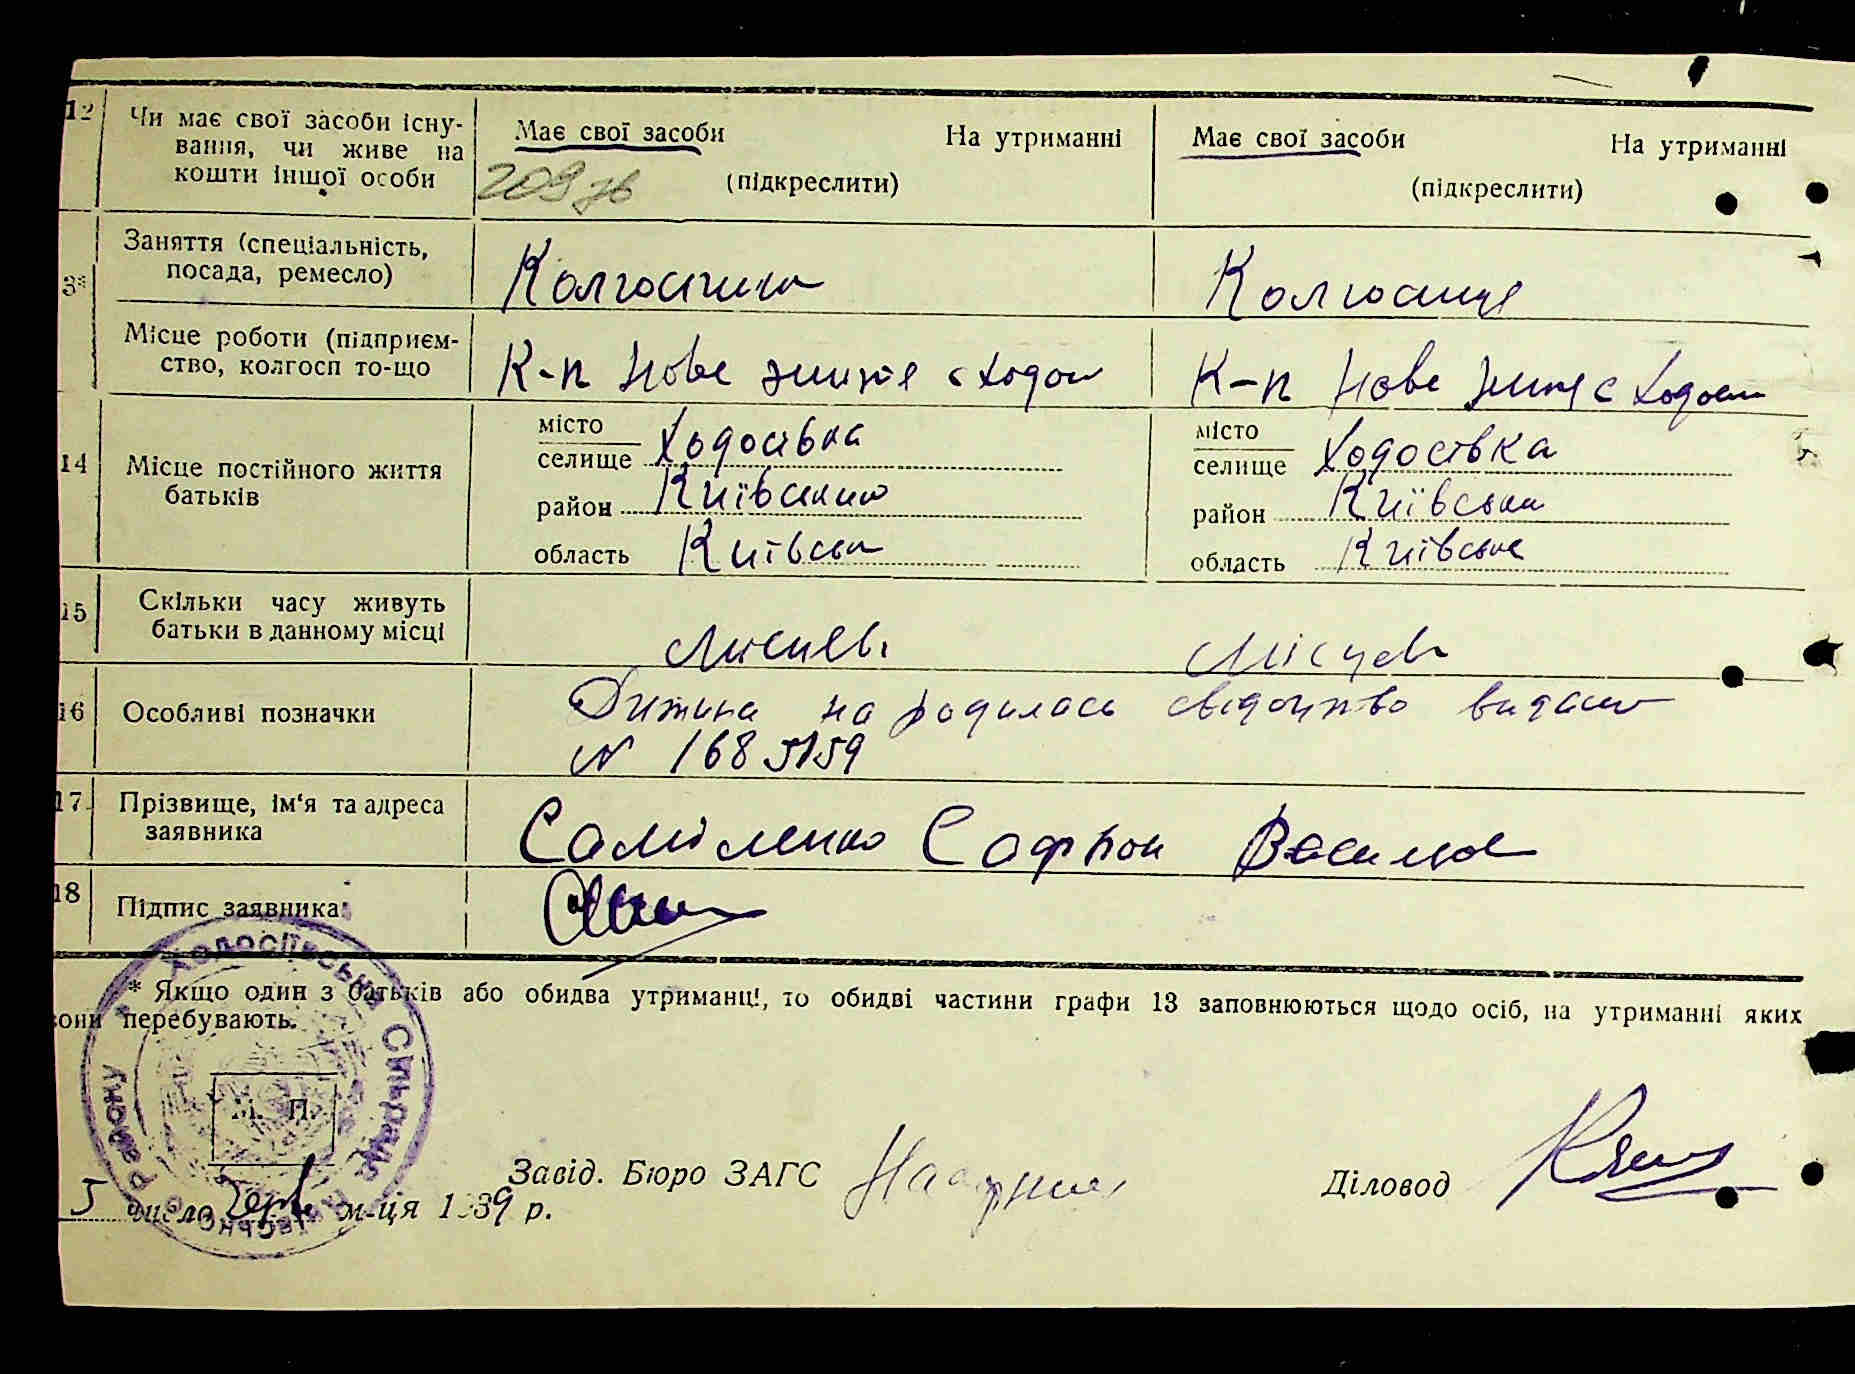 12 Чи має свої засоби існу-
вання, чи живе на
кошти іншої особи
Має свої засоби На утриманні
(підкреслити)
Має свої засоби На утриманні
(підкреслити)
Заняття (спеціальність,
посада, ремесло)
Місце роботи (підприєм-
ство, колгосп то-що
К-п Нове життя с Ходос
К-п Нове життя с Ходос
14 Місце постійного життя
батьків
місто
селище Ходосівка
район Київський
область Київська
місто
селище Ходосівка
район Київськи
область Київська
15 Скільки часу живуть
батьки в данному місці
Місцеві
Місцеві
16 Особливі позначки
Дитина народилась свідоцтво видано
N 1685159
17 Прізвище, ім'я та адреса
заявника
Самійленко Сафрон
18 Підпис заявника
* Якщо один з батьків або обидва утриманці, то обидві частини графи 13 заповнюються щодо осіб, на утриманні яких
вони перебувають.
Ходосіївська Сільрада Київського Району
М. П.
5 число черв м-ця 1939 р.
Завід. Бюро ЗАГС
Діловод